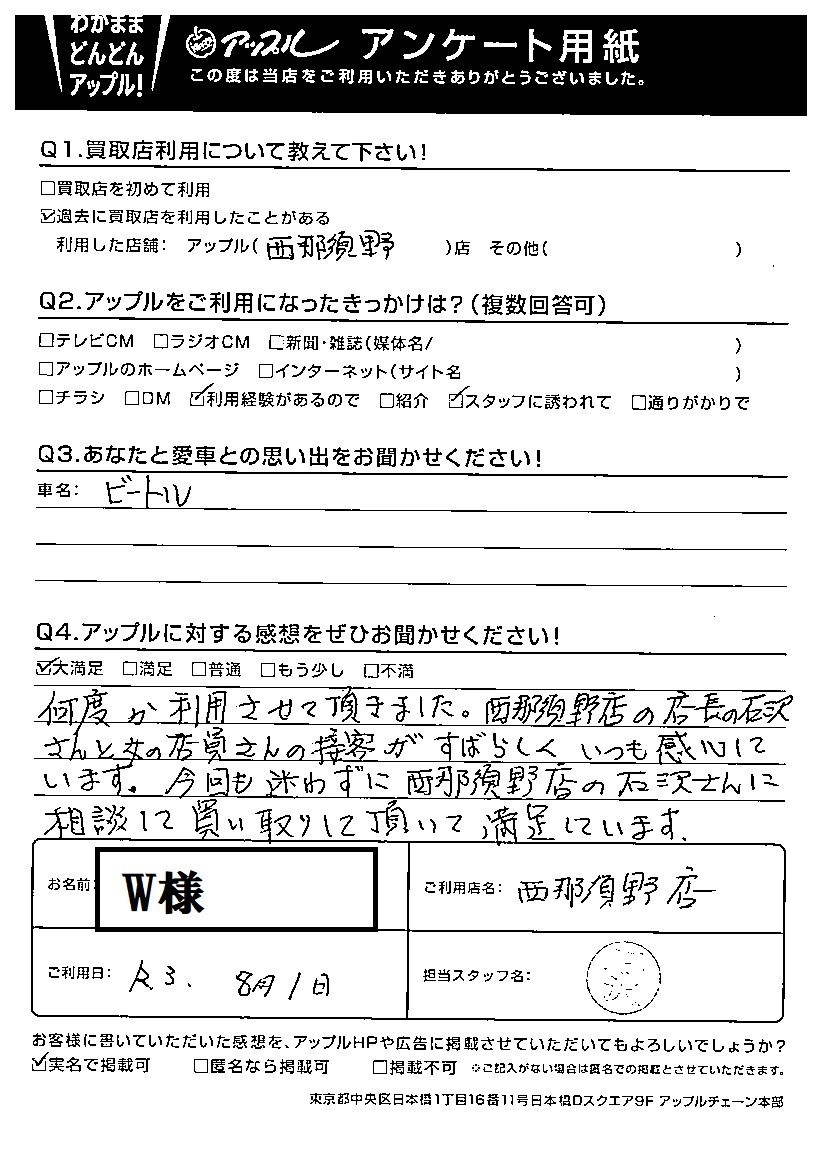 わがまま
どんどん
アップル!
アップル アンケート用紙
この度は当店をご利用いただきありがとうございました。
Q1.買取店利用について教えて下さい!
□買取店を初めて利用
☑過去に買取店を利用したことがある
利用した店舗: アップル(西那須野 )店 その他( )
Q2.アップルをご利用になったきっかけは?(複数回答可)
□テレビCM □ラジオCM □新聞・雑誌(媒体名/ )
□アップルのホームページ □インターネット(サイト名 )
□チラシ □DM ☑利用経験があるので □紹介 ☑スタッフに誘われて □通りがかりで
Q3.あなたと愛車との思い出をお聞かせください!
車名: ビートル
Q4.アップルに対する感想をぜひお聞かせください!
☑大満足 □満足 □普通 □もう少し □不満
何度か利用させて頂きました。西那須野店の店長の石沢
さんと女の店員さんの接客がすばらしくいつも感心して
います。今回も迷わずに西那須野店の石沢さんに
相談して買い取りして頂いて満足しています.
お名前: W様
ご利用店名: 西那須野店
ご利用日: R3. 8月1日
担当スタッフ名:
お客様に書いていただいた感想を、アップルHPや広告に掲載させていただいてもよろしいでしょうか?
☑実名で掲載可 □匿名なら掲載可 □掲載不可 ※ご記入がない場合は匿名での掲載とさせていただきます。
東京都中央区日本橋1丁目16番11号日本橋Dスクエア9F アップルチェーン本部